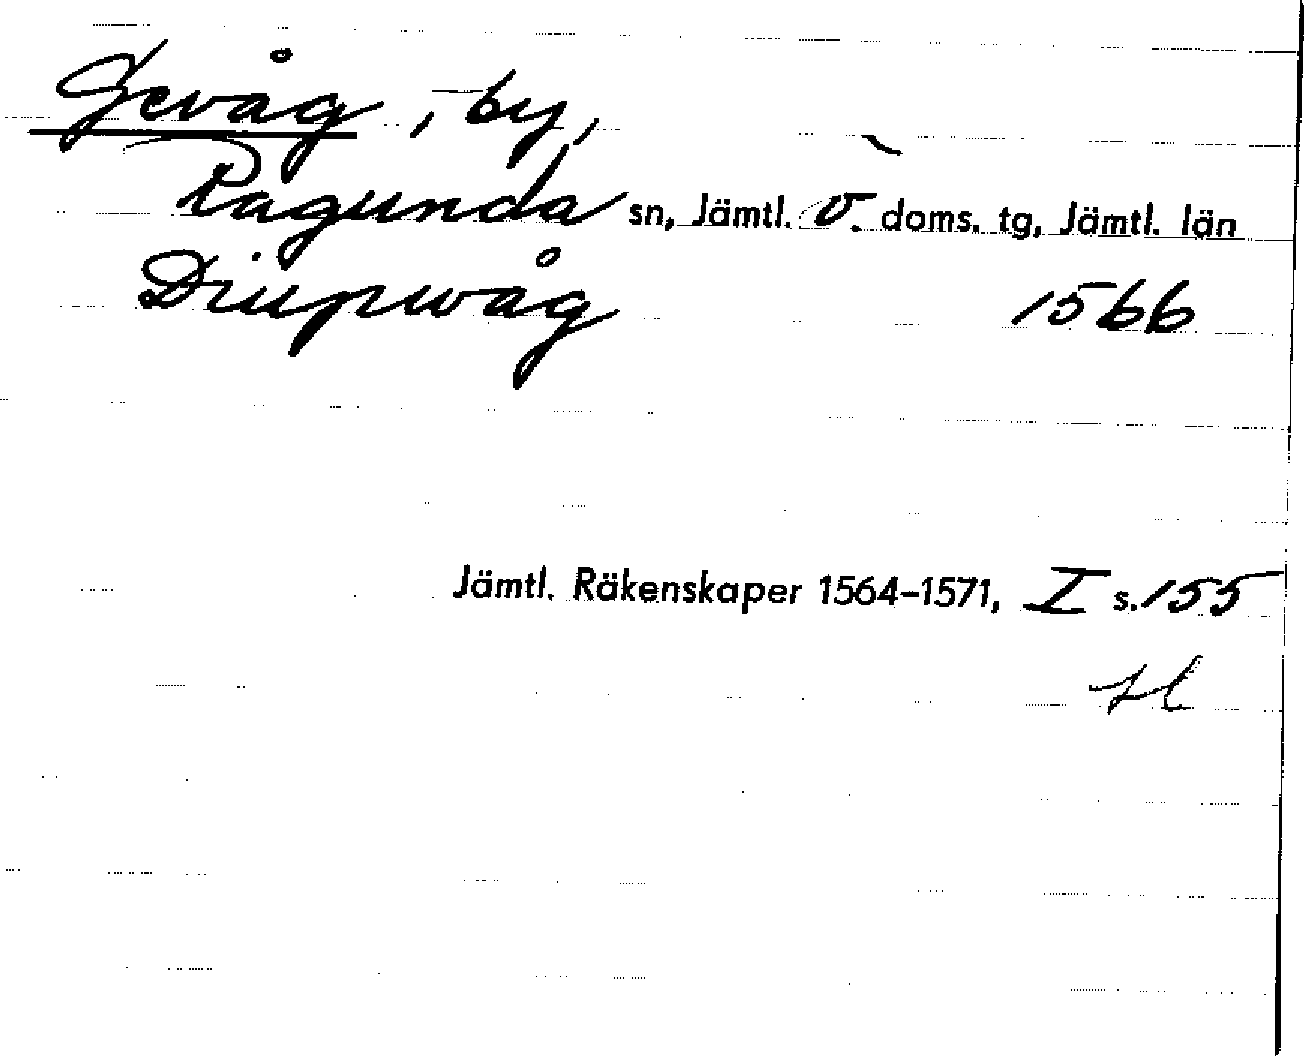 Gevåg, by,
Ragunda sn, Jämtl. ö. doms. tg, Jämtl. län
Diupwåg 1566
Jämtl. Räkenskaper 1564–1571, I s. 155